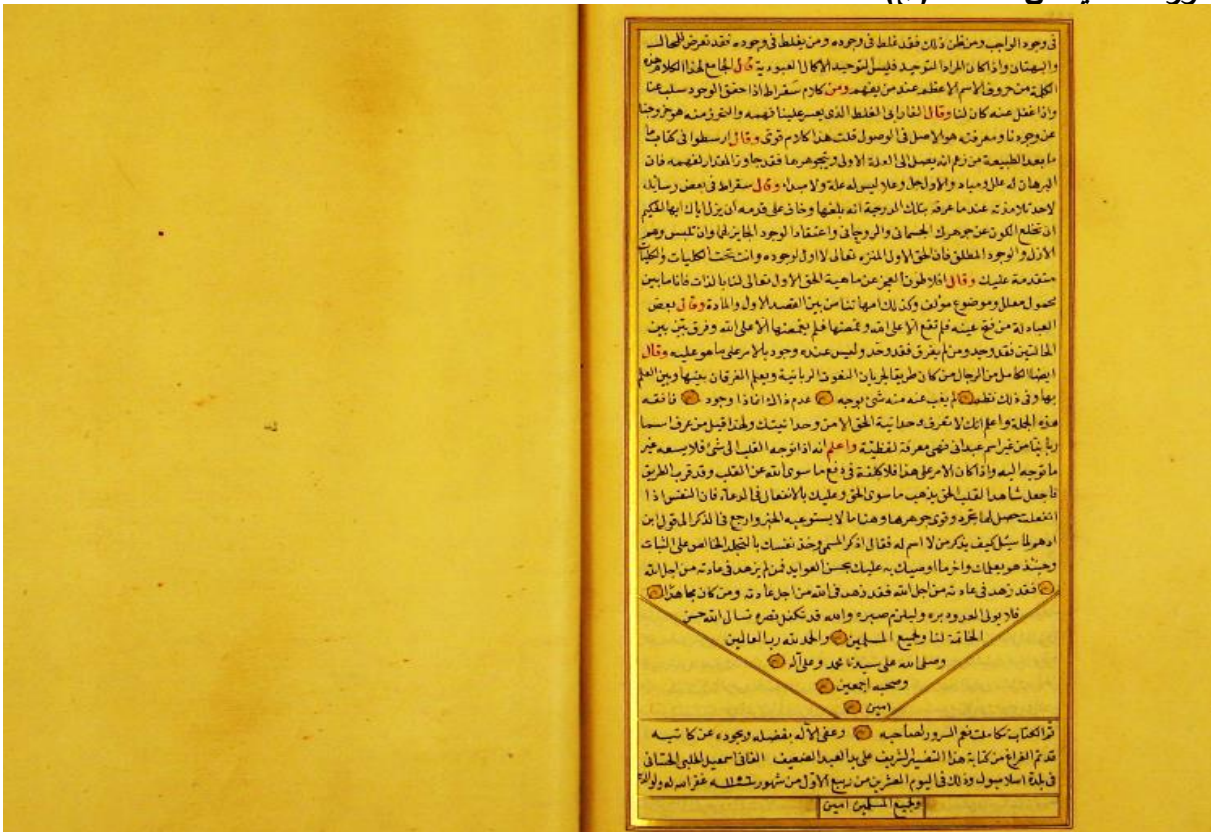 فى وجود الواجب ومن ظن ذلك فقد غلط فى وجوده ومن يغلط فى وجوده فقد تعرض للمحال
والبهتان واذا كان المراد التوحيد فليس التوحيد الا كمال العبودية قال الجامع لهذا الكلام هذه
الكلمة من حروف الاسم الاعظم عند من يفهم ومن كلام سقراط اذا حقق الوجود سلب عنا
واذا غفل عنه كان لنا وقال الفارابى الغلط الذى يعسر علينا فهمه والتحرز منه هو خروجنا
عن وجودنا ومعرفته هو الاصل فى الوصول قلت هذا كلام قوى وقال ارسطوا فى كتاب ما
ما بعد الطبيعة من زعم انه يصل الى العلة الاولى وبجوهرها فقد جاوز المقدار لفهمه فان
البرهان له علل ومباد والاول جل وعلا ليس له علة ولا مبداء وقال سقراط فى بعض رسائله
لاحد تلامذته عندما عرفه بتلك الدرجة انه بلغها وخاف على قدمه ان يزل اياك ايها الحكيم
ان تخلع الكون عن جوهرك الجسمانى والروحانى واعتقاد الوجود الجايز لها وان تلبس وهم
الازل والوجود المطلق فان الحق الاول المنزه تعالى لا اول لوجوده وانت تحت الكليات والكليات
متقدمة عليك وقال افلاطون العجز عن ماهية الحق الاول تعالى لنا بالذات فانا ما بين
محمول معلل وموضوع مؤلف وكذلك امهاتنا من بين القصد الاول والمادة وقال بعض
العبادلة من فتح عينه فلم تقع الا على الله وغمضها فلم يغمضها الا على الله وفرق بين بين
الحالتين فقد وجد ومن لم يفرق فقد وحد وليس عنده وجود بالامر على ما هو عليه وقال
ايضا الكامل من الرجال من كان طريقا لجريان النعوت الربانية ويعلم الفرقان بينها وبين العلم
بها وفى ذلك نظم لم يغب عنه منه شئ بوجه عدم ذاك اناذا وجود فافقه
هذه الجملة واعلم انك لا تعرف وحدانية الحق الا من وحدانيتك ولهذا قيل من عرف اسما
ربانيا من غير اسم عبدانى فهى معرفة لفظية واعلم انه اذا توجه القلب الى شئ فلا يسعه غير
ما توجه اليه واذا كان الامر على هذا فلا كلفة فى دفع ما سوى الله عن القلب وقد قرب الطريق
فاجعل شاهد القلب الحق يذهب ما سوى الحق وعليك بالانفعال فى الدعاء فان النفس اذا
انفعلت حصل لها تجرد وقوى جوهرها وهنا ما لا يستوعبه الخبر وارجع فى الذكر الى قول ابن
ادهم لما سئل كيف يذكر من لا اسم له فقال اذكر المسمى وخذ نفسك بالتجلد الخالص على الثبات
وحينئذ هو يعلمك واخر ما اوصيك به عليك بحسن العوايد فمن لم يزهد فى عادته من اجل الله
فقد زهد فى عادته من اجل الله فقد زهد فى الله من اجل عادته ومن كان مجاهدا
فلا يولى العدو دبره وليلزم صبره والله قد تكفل نصره نسال الله حسن
الخاتمة لنا ولجميع المسلمين والحمد لله رب العالمين
وصلى الله على سيدنا محمد وعلى آله
وصحبه اجمعين
امين
تم الكتاب تكاملت نعم السرور لصاحبه وعفى الاله بفضله وبجوده عن كاتبه
قد تم الفراغ من كتابة هذا التفسير الشريف على يد العبد الضعيف الفانى اسمعيل الحلبى
فى بلدة اسلامبول وذلك فى اليوم العشرين من ربيع الاول من شهور سنه غفر الله له ولوالديه
ولجميع المسلمين امين